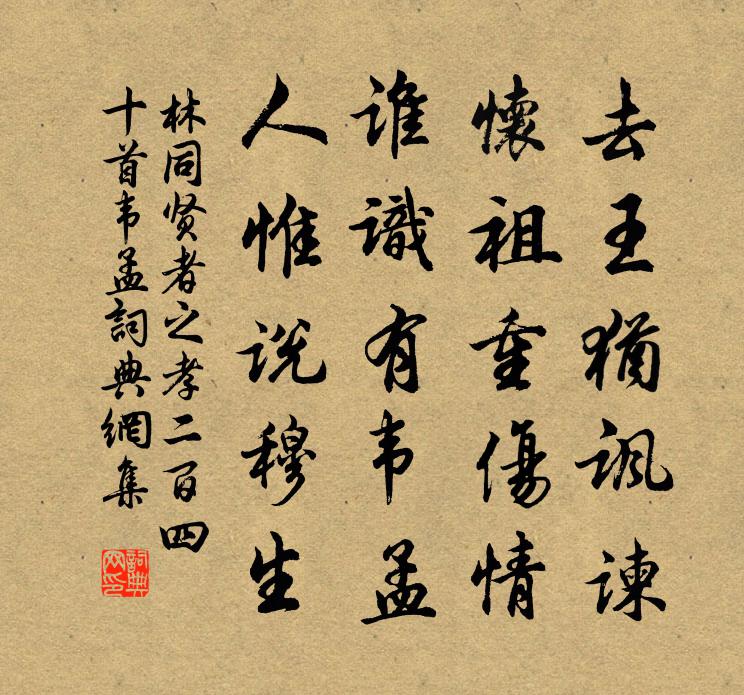 去王犹讽谏
懷祖重傷情
谁識有韦孟
人惟说穆生
林同贤者之孝二百四
十首韦孟詞典網集
詞典
网印